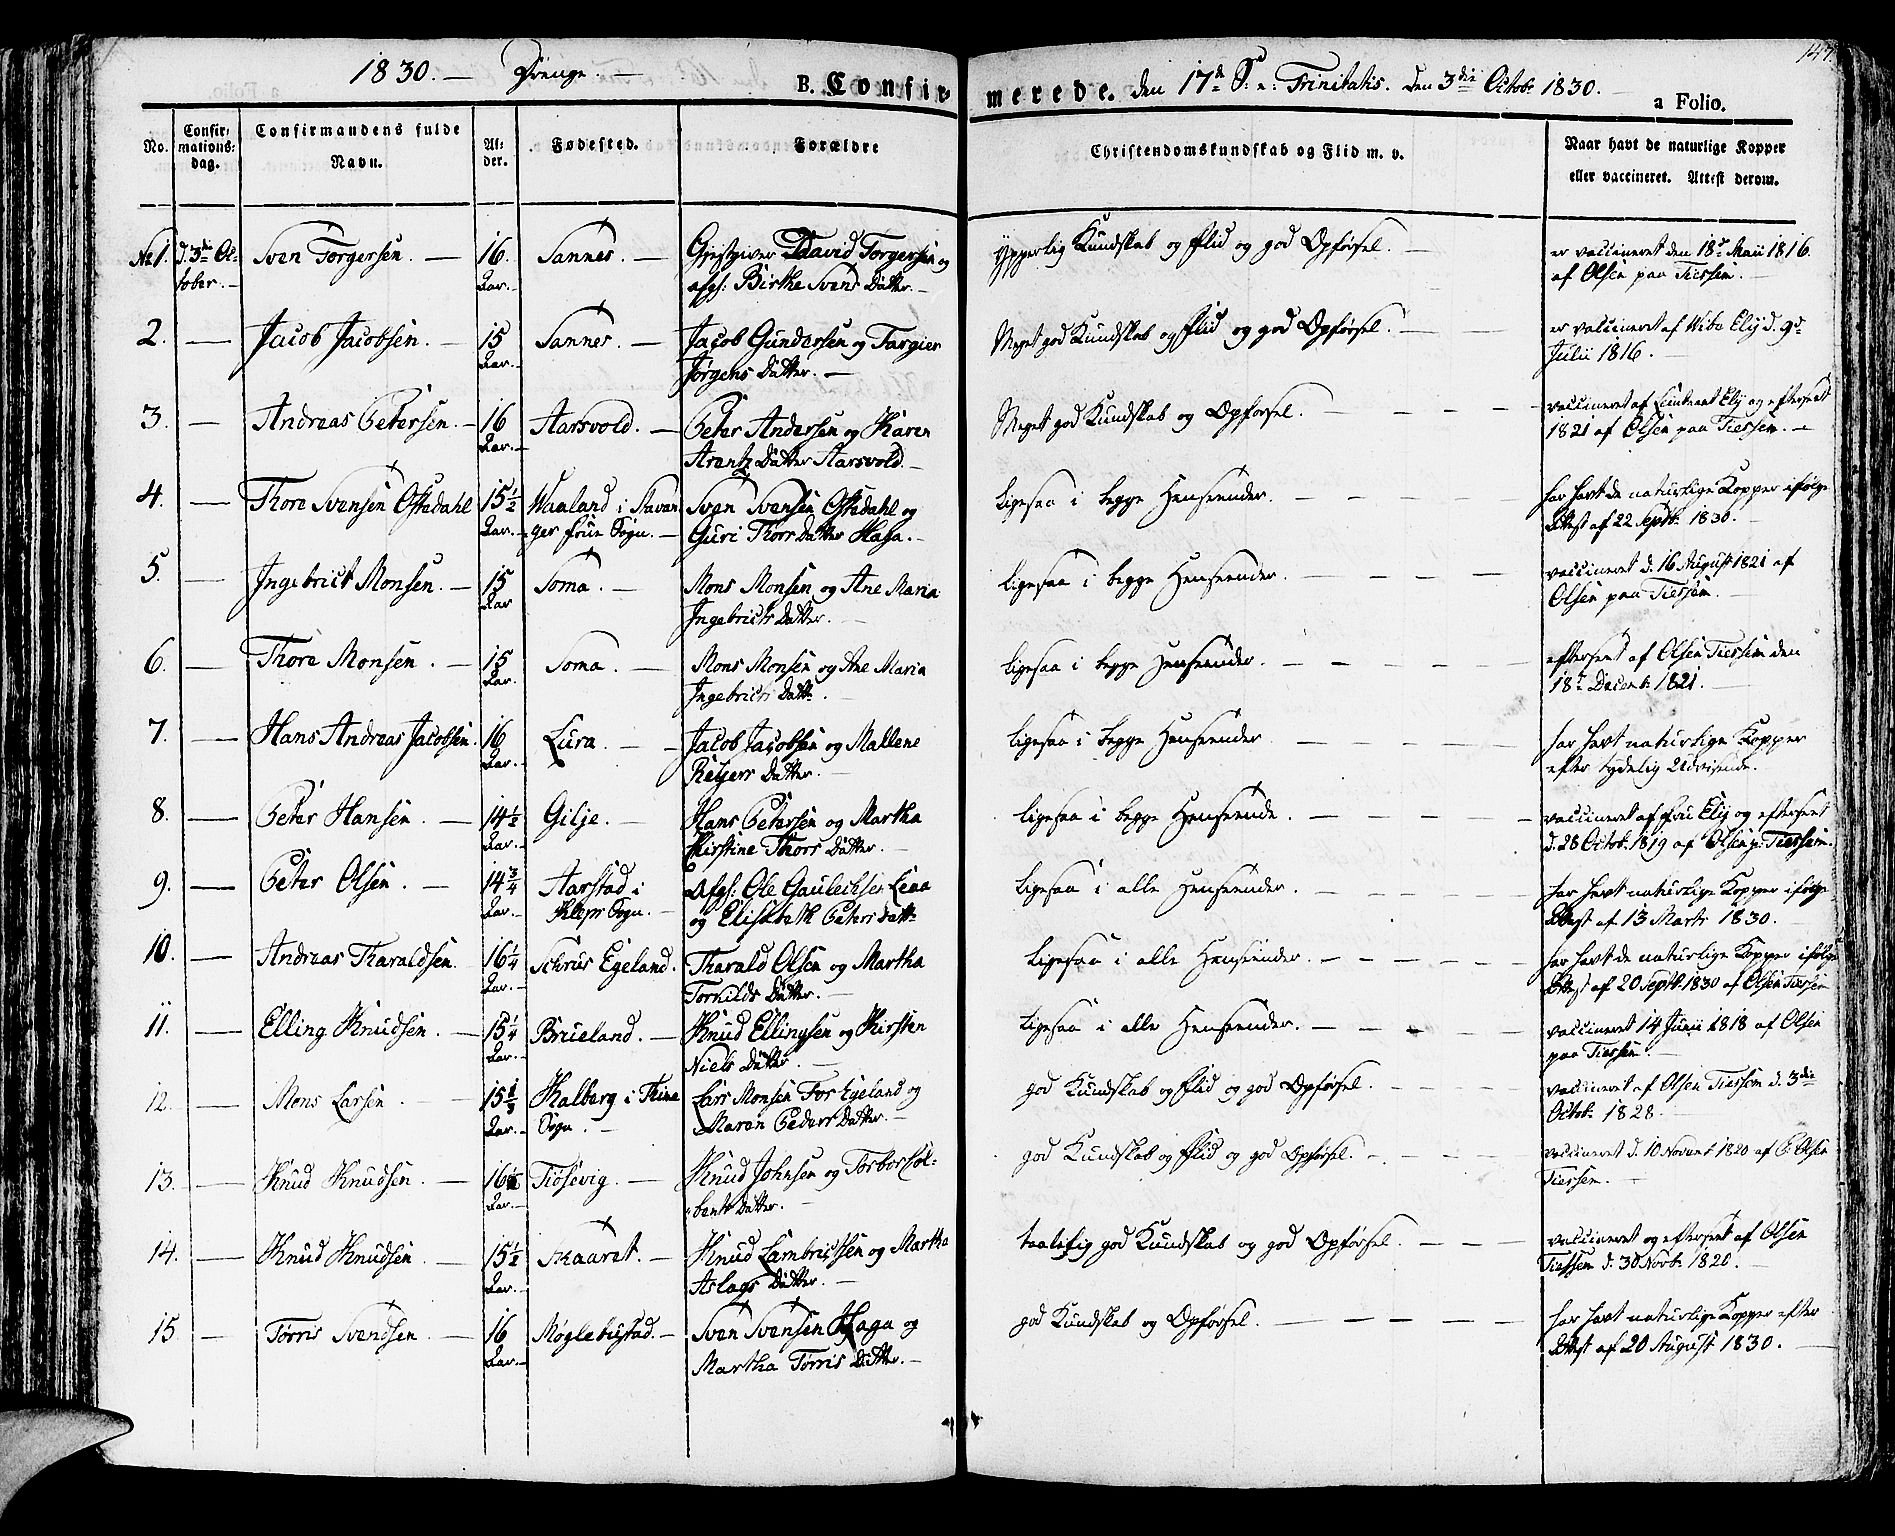 147
1830. — Drenge. —
B. Confirmerede. den 17de S. e. Trinitatis. den 3die Octob: 1830. —
a Folio.
No. Confirmationsdag. Confirmandens fulde Navn. Alder. Fødested. Forældre Christendomskundskab og Flid m. v. Naar havt de naturlige Kopper eller vaccineret. Attest derom.
No 1. d. 3die Oc- Sven Torgersen. — 16. Sannes. — Gjestgiver David Torgersen og Ypperlig Kundskab og Flid og god Opførsel. — er vaccineret den 18de Maii 1816.
tober. — Aar. — afgl: Birthe Svens Datter. — af Olsen paa Tiessem. —
2. — Jacob Jacobsen. — 15 Sannes. — Jacob Gundersen og Targier Meget god Kundskab og Flid og god Opførsel. — er vaccineret af Wibe Ely d. 9de
Aar. — Jørgens Datter. — Julii 1816. —
3. — Andreas Petersen. — 16 Aarsvold. — Peter Andersen og Karen Meget god Kundskab og Opførsel. — vaccineret af Lieutenant Ely og efterseet
Aar. — Arentz Datter Aarsvold. — 1821 af Olsen paa Tiessem. —
4. — Thore Svensen Oftedahl 15 1/2 Waaland i Stavan- Sven Svensen Oftedahl og Ligesaa i begge Henseender. — har havt de naturlige Kopper ifølge
Aar. — ger frue Sogn. — Guri Thors Datter Hafa. — Attest af 22 Septb: 1830. —
5. — Ingebrict Monsen. — 15 Soma. — Mons Monsen og Ane Maria Ligesaa i begge Henseender. — vaccineret d. 16 August 1821 af
Aar Ingebricts Datter. — Olsen paa Tiessem. —
6. — Thore Monsen. — 15 Soma. — Mons Monsen og Ane Maria Ligesaa i begge Henseender. — efterseet af Olsen Tiessem den
Aar. Ingebricts Datt: — 18de Decemb: 1821. —
7. — Hans Andreas Jacobsen. 16 Lura. — Jacob Jacobsen og Mallene Ligesaa i begge Henseender — har havt naturlige Kopper
Aar. — Reijers Datter. — efter tydelig Udvisende.
8. — Peter Hansen. — 14 1/2 Gilje. — Hans Petersen og Martha Ligesaa i begge Henseende. — vaccineret af Fru Ely og efterseet
Aar. — Kirstine Thors Datter. — d. 28 Octob: 1819 af Olsen p: Tiessem.
9. — Peter Olsen. — 14 3/4 Aarstad i Afgl: Ole Gauteschsen Lena Ligesaa i alle Henseender. — har havt naturlige Kopper ifølge
Aar. — Kleps Sogn. — og Elisabeth Peters Datt: Attest af 13 Marts 1830. —
10. — Andreas Tharaldsen. 16 1/4 Schrus Egeland. Tharald Olsen og Martha Ligesaa i alle Henseender. — har havt de naturlige Kopper ifølge
Aar. — Tornilds Datter. — Attest af 20 Septb: 1830 af Olsen Tiessem
11. — Elling Knudsen. — 15 1/4 Brueland. — Knud Ellingsen og Kirsten Ligesaa i alle Henseender. — vaccineret 14 Junii 1818 af Olsen
Aar. — Niels Datter. — paa Tiessem. —
12. — Mons Larsen. — 15 Kalberg i Thime Lars Monsen Fos Egeland og god Kundskab og Flid og god Opførsel. — vaccineret af Olsen Tiessem d. 3die
Aar. — Sogn. — Maren Peders Datter. — Octob: 1828. —
13. — Knud Knudsen. — 16 Tiøsevig. — Knud Johnsen og Torbor Col- god Kundskab og Flid og god Opførsel. — vaccineret d. 10 Novemb: 1820 af Olsen
Aar. — bents Datter. — Tiessem. —
14. — Knud Knudsen — 15 1/2 Skaaret. — Knud Lambrictsen og Martha taalelig god Kundskab og god Opførsel. — vaccineret og efterseet af Olsen
Aar. — Aslags Datter. — Tiessem d. 30 Novb: 1820. —
15 — Tørris Svendsen. — 16 Møglebustad. — Sven Svensen Haga og god Kundskab og Opførsel. — har havt naturlige Kopper efter
Aar. — Martha Tørris Datter. — Attest af 20 August 1830. —